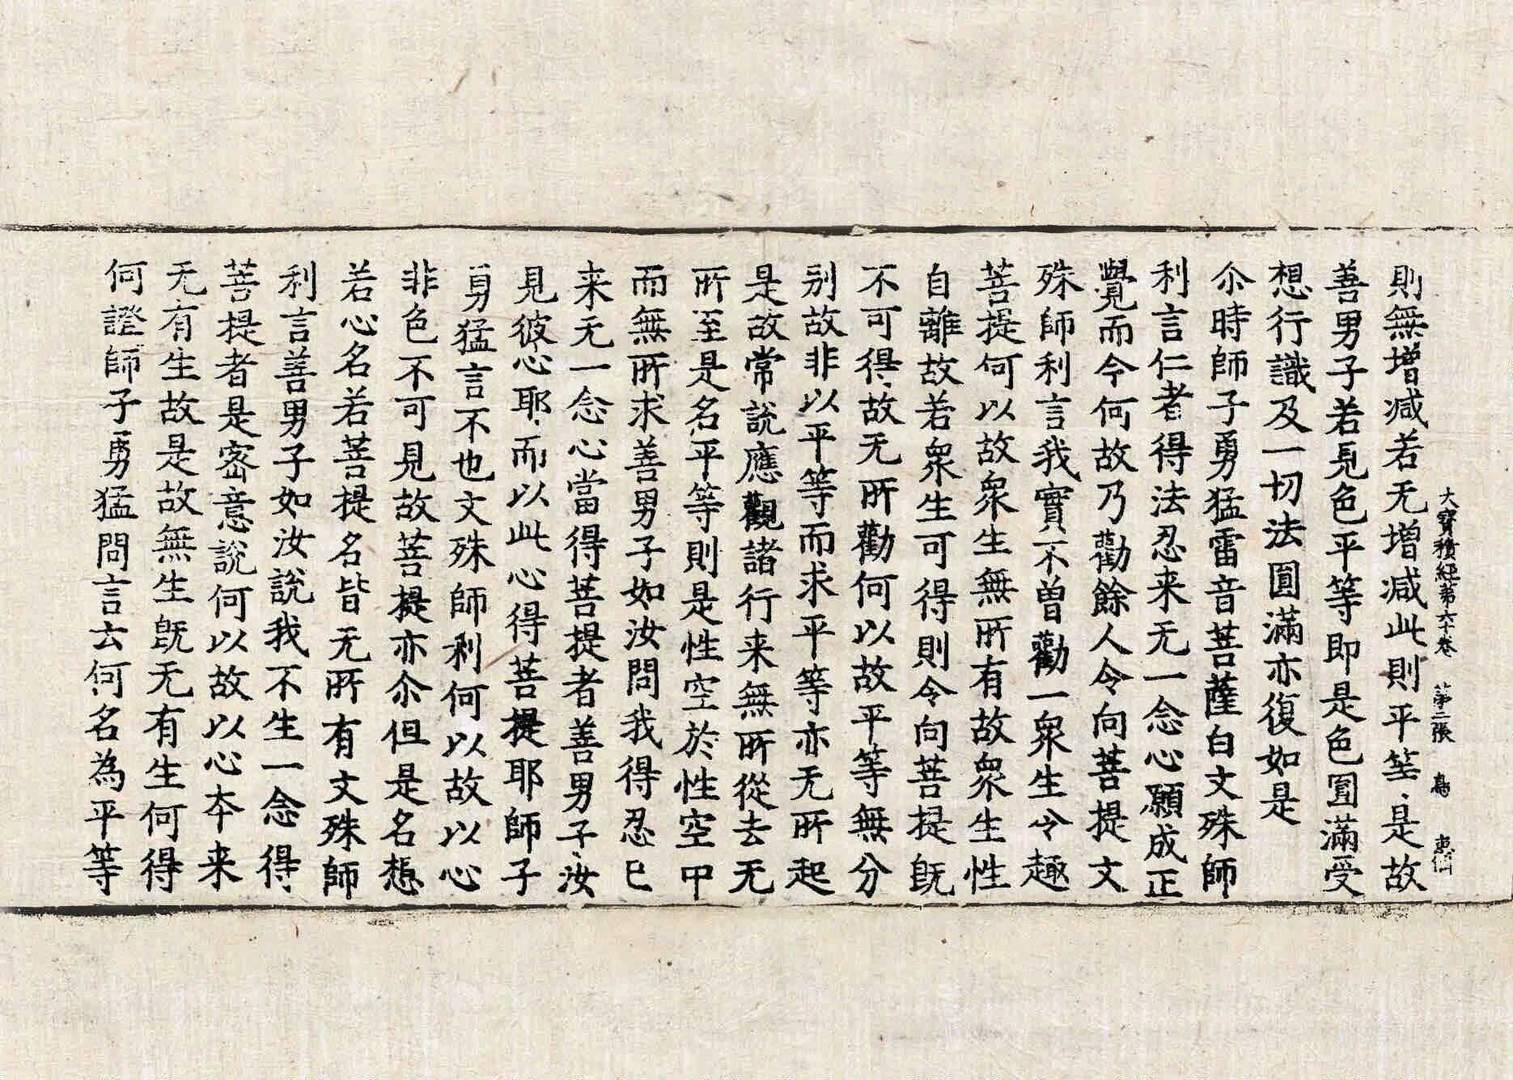 大寶積經苐六十卷　苐二張　鳥
則無增减若无增减此則平䓁是故
善男子若見色平等即是色圎滿受
想行識及一切法圓滿亦復如是
尒時師子勇猛雷音菩薩白文殊師
利言仁者得法忍来无一念心願成正
覺而今何故乃勸餘人令向菩提文
殊師利言我實不曽勸一衆生令趣
菩提何以故衆生無所有故衆生性
自離故若衆生可得則令向菩提旣
不可得故无所勸何以故平等無分
别故非以平等而求平等亦无所起
是故常說應觀諸行来無所從去无
所至是名平等則是性空於性空中
而無所求善男子如汝問我得忍已
来无一念心當得菩提者善男子汝
見彼心耶而以此心得菩提耶師子
勇猛言不也文殊師利何以故以心
非色不可見故菩提亦尒但是名想
若心名若菩提名皆无所有文殊師
利言善男子如汝說我不生一念得
菩提者是密意說何以故以心夲来
无有生故是故無生旣无有生何得
何證師子勇猛問言云何名為平等